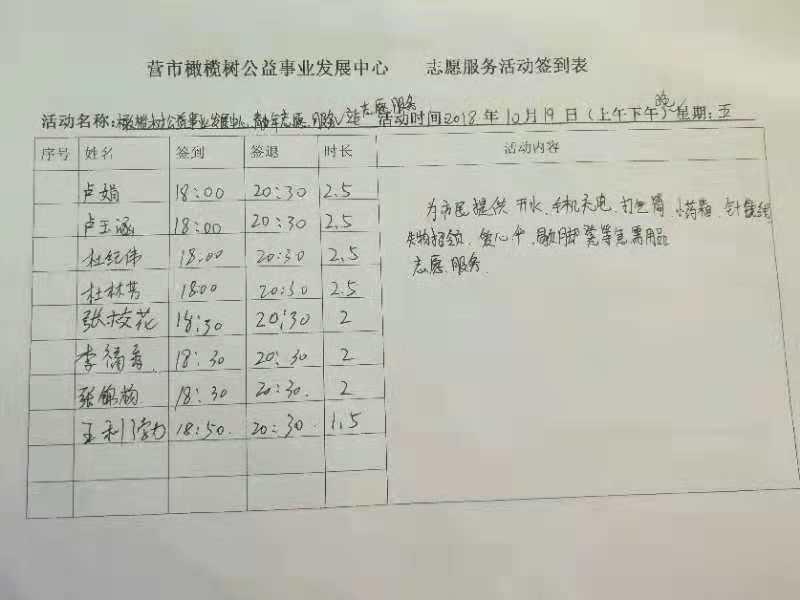 营市橄榄树公益事业发展中心 志愿服务活动签到表
活动名称:橄榄树公益事业发展中心 青年志愿服务站志愿服务 活动时间2018年10月19日(上午下午晚)星期:五
序号 姓名 签到 签退 时长 活动内容
卢娟 18:00 20:30 2.5
卢玉涵 18:00 20:30 2.5
杜纪伟 18:00 20:30 2.5
杜林芳 18:00 20:30 2.5
张校花 18:30 20:30 2
李福香 18:30 20:30 2
张银 18:30 20:30 2
王利 18:50 20:30 1.5
为市民提供 开水、手机充电、打气筒 小药箱、针线包
失物招领、爱心伞、歇脚凳等急需用品
志愿服务